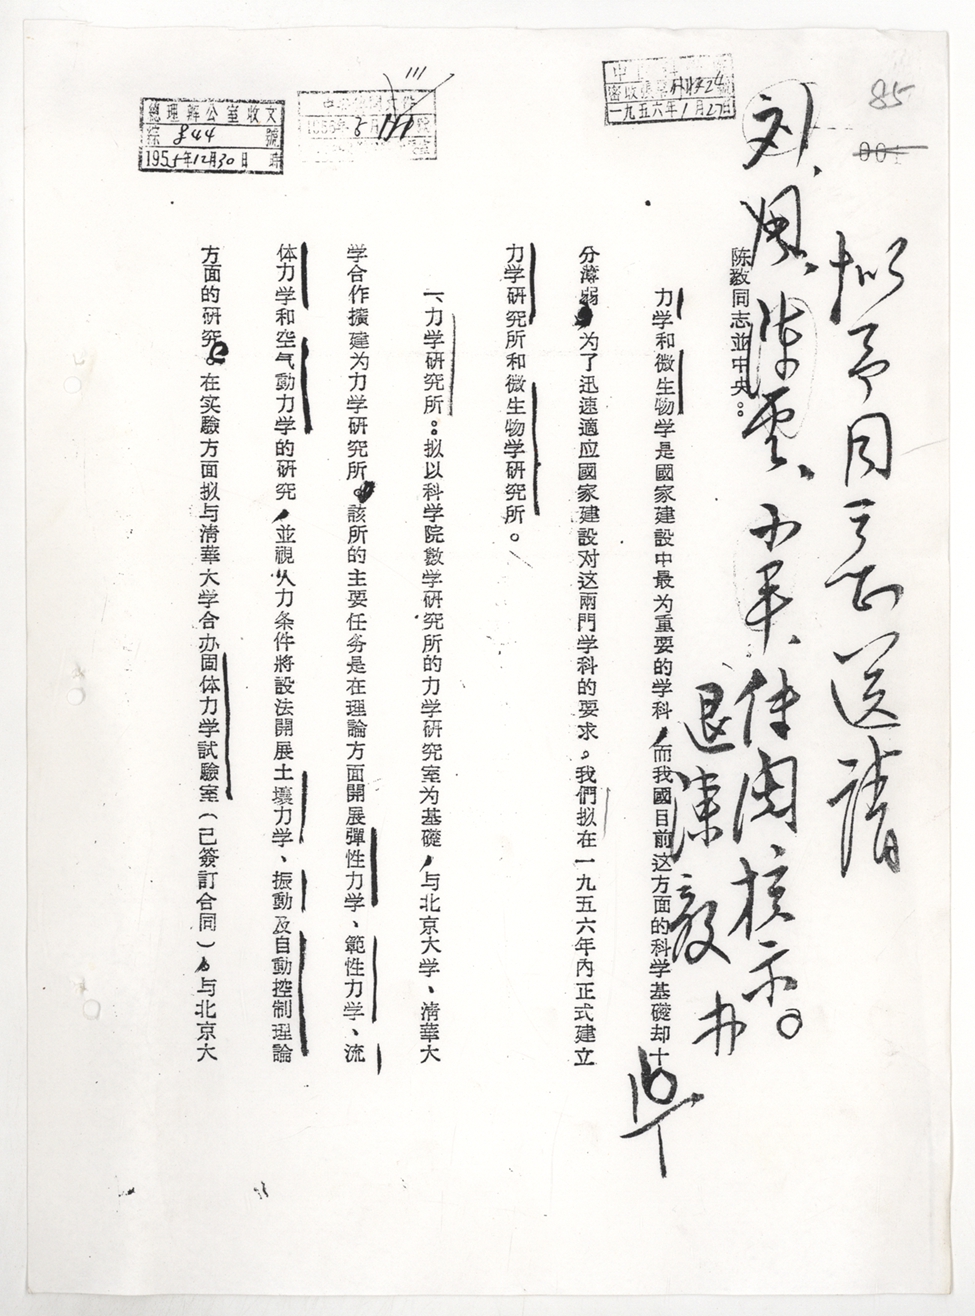 85
001
拟予同意送請
刘、周、陈雲、小平、
核示。
退陳毅
办
總理辦公室收文
綜 844 號
1955年12月30日
一九五六年1月27日
陈毅同志並中央：
力学和微生物学是國家建設中最为重要的学科，而我國目前这方面的科学基礎却十
分薄弱。为了迅速適应國家建設对这兩門学科的要求。我們拟在一九五六年內正式建立
力学研究所和微生物学研究所。
一、力学研究所：拟以科学院数学研究所的力学研究室为基礎，与北京大学、清華大
学合作擴建为力学研究所。該所的主要任务是在理論方面開展彈性力学、範性力学、流
体力学和空气動力学的研究，並視人力条件將設法開展土壤力学、振動及自動控制理論
方面的研究。在实驗方面拟与清華大学合办固体力学試驗室（已簽訂合同），与北京大